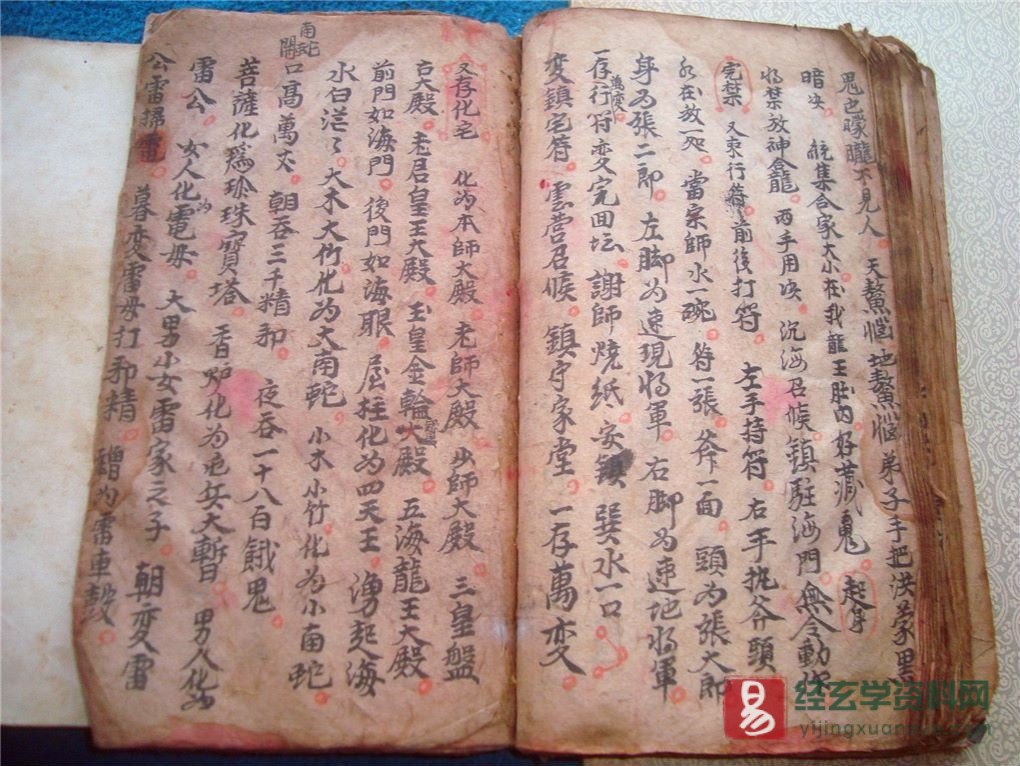 鬼之曚曨不見人 天鰲惱地鰲惱弟子手把洪蒙黑
暗决 統集合家大小在我龍王肚内好藏鬼 起身
將禁放神龕 两手用决 沉海召候鎮駐海門無令動作
完禁 又来行符前後打符 左手持符 右手执斧頭
水在放一处 當宗師水碗 符一張 斧一面 頭为張大郎
身为張二郎 左脚为速現將軍 右脚为速地將軍
一存行符变萬变完回坛 謝師燒紙 安鎮 巽水一口
变鎮宅符 雲营召候 鎮守家堂 一存萬变
又存化宅 化为本師大殿 老師大殿 少師大殿 三皇盤
古大殿 老君皇王大殿 玉皇金輪大殿 五海龍王大殿
前門如海門 後門如海眼 屋柱化为四天王 湧起海
水白茫〻 大木大竹化为大南蛇 小木小竹化为小南蛇
南蛇開口高萬丈 朝吞三千精邪 夜吞一十八百餓鬼
菩薩化爲珍珠寶塔 香炉化为 兵大 男人化为
雷公 女人化为電母 大男小女雷家之子 朝变雷
公雷掃電 暮变雷母打邪精 为雷車
易
经玄学资料网
yijingxuan